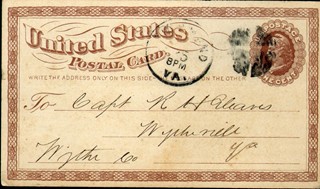 United States
POSTAL CARD.
WRITE THE ADDRESS ONLY ON THIS SIDE THE MESSAGE ON THE OTHER
POSTAGE
ONE CENT
8PM
VA.
To Capt R H
Wytheville
Wythe Co Va